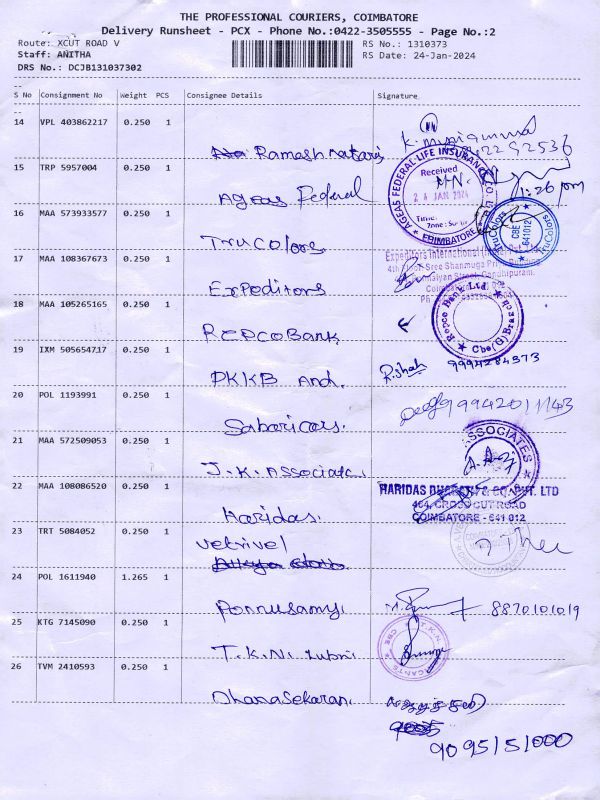 THE PROFESSIONAL COURIERS, COIMBATORE
Delivery Runsheet - PCX - Phone No.:0422-3505555 - Page No.:2
Route: XCUT ROAD V
RS No.: 1310373
Staff: ANITHA
RS Date: 24-Jan-2024
DRS No.: DCJB131037302
S No Consignment No Weight PCS Consignee Details Signature
14 VPL 403862217 0.250 1
Ramesh
15 TRP 5957004 0.250 1
Ageas Federal
AGEAS FEDERAL LIFE INSURANCE
Received
24 JAN 2024
Time:
COIMBATORE
1:26 pm
16 MAA 573933577 0.250 1
TruColors
TruColors
CBE
641012
17 MAA 108367673 0.250 1
Expeditors
Expeditors International
18 MAA 105265165 0.250 1
REPCO Bank
Repco Bank Ltd.
19 IXM 505654717 0.250 1
PKKB And.
9994284573
20 POL 1193991 0.250 1
21 MAA 572509053 0.250 1
J.K. Associate
ASSOCIATES
22 MAA 108086520 0.250 1
Haridas.
464, CROSS CUT ROAD
COIMBATORE - 641 012
23 TRT 5084052 0.250 1
Vetrivel
24 POL 1611940 1.265 1
Ponnusamy.
8870101019
25 KTG 7145090 0.250 1
T.K.N.
26 TVM 2410593 0.250 1
Dhanasekaran.
9095151000